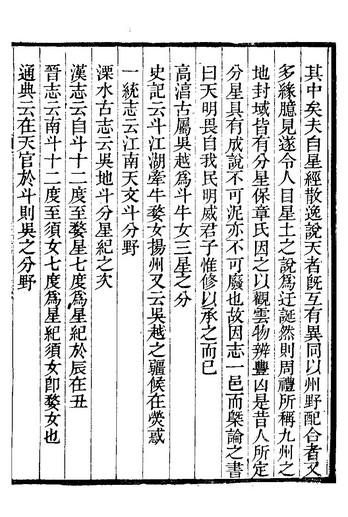 其中矣夫自星經散逸說天者旣互有異同以州野配合者又
多緣臆見遂令人目星土之說為迂誕然則周禮所稱九州之
地封域皆有分星保章氏因之以觀雲物辨豐凶是昔人所定
分星具有成說不可泥亦不可廢也故因志一邑而槩論之書
曰天明畏自我民明威君子惟修以承之而已
高淳古屬吳越爲斗牛女三星之分
史記云斗江湖牽牛婺女揚州又云吳越之疆候在熒惑
一統志云江南天文斗分野
溧水古志云吳地斗分星紀之次
漢志云自斗十二度至婺星七度爲星紀於辰在丑
晉志云南斗十二度至須女七度爲星紀須女卽婺女也
通典云在天官於斗則吳之分野